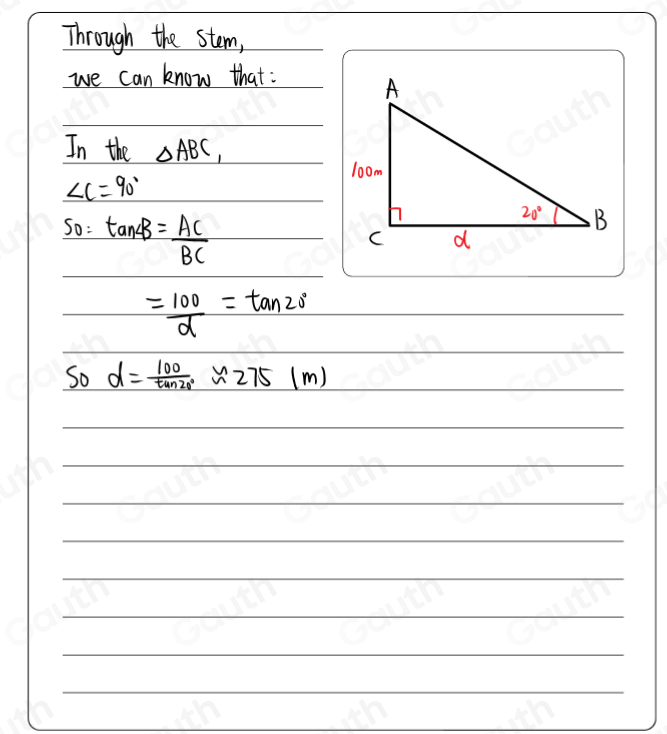 Through the stem,
we can know that:
In the △ABC,
∠C=90°
So: tan∠B = AC/BC
= 100/d = tan20°
So d = 100/tan20° ≈ 275 (m)
A
100m
20°
B
C
d
Gauth